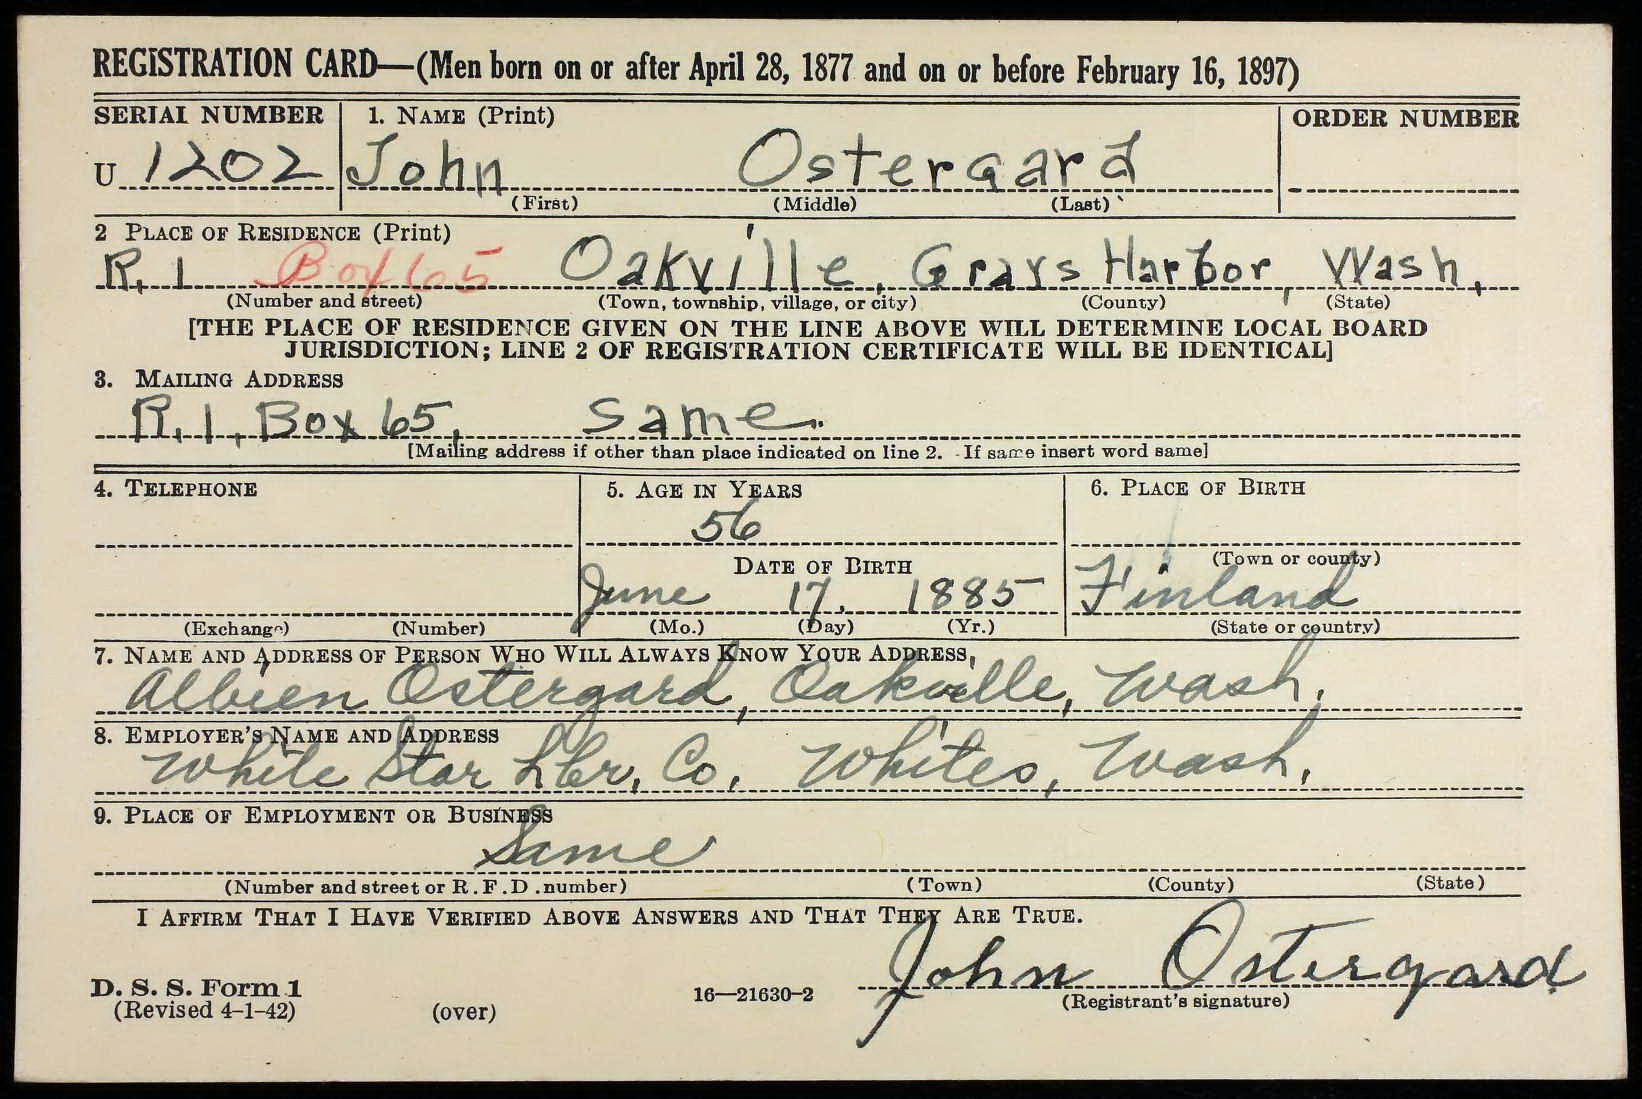 REGISTRATION CARD—(Men born on or after April 28, 1877 and on or before February 16, 1897)
SERIAL NUMBER 1. NAME (Print) ORDER NUMBER
U 1202 John Ostergard
(First) (Middle) (Last)
2 PLACE OF RESIDENCE (Print)
R. 1 Box 65 Oakville, Grays Harbor, Wash.
(Number and street) (Town, township, village, or city) (County) (State)
[THE PLACE OF RESIDENCE GIVEN ON THE LINE ABOVE WILL DETERMINE LOCAL BOARD
JURISDICTION; LINE 2 OF REGISTRATION CERTIFICATE WILL BE IDENTICAL]
3. MAILING ADDRESS
R. 1, Box 65, Same.
[Mailing address if other than place indicated on line 2. If same insert word same]
4. TELEPHONE 5. AGE IN YEARS 6. PLACE OF BIRTH
56
DATE OF BIRTH (Town or county)
June 17, 1885 Finland
(Exchange) (Number) (Mo.) (Day) (Yr.) (State or country)
7. NAME AND ADDRESS OF PERSON WHO WILL ALWAYS KNOW YOUR ADDRESS
Albien Ostergard, Oakville, Wash.
8. EMPLOYER'S NAME AND ADDRESS
White Star Lbr. Co. Whites, Wash.
9. PLACE OF EMPLOYMENT OR BUSINESS
Same
(Number and street or R.F.D. number) (Town) (County) (State)
I AFFIRM THAT I HAVE VERIFIED ABOVE ANSWERS AND THAT THEY ARE TRUE.
John Ostergard
D. S. S. Form 1
(Revised 4-1-42) (over) 16—21630-2 (Registrant's signature)